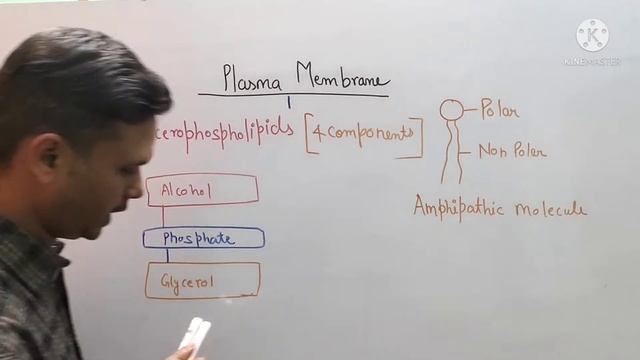 Plasma Membrane
cerophospholipids [4 components]
Alcohol
Phosphate
Glycerol
Polar
Non Polar
Amphipathic Molecule
K
KINEMASTER